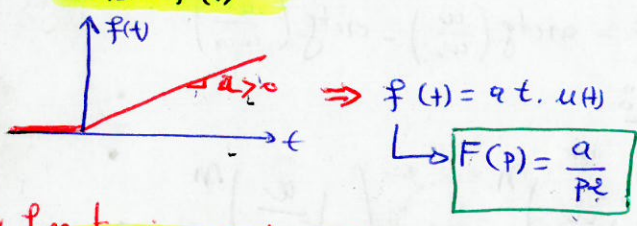 f(t)
a > 0
⇒ f(t) = a t. u(t)
t
F(p) = a/p²